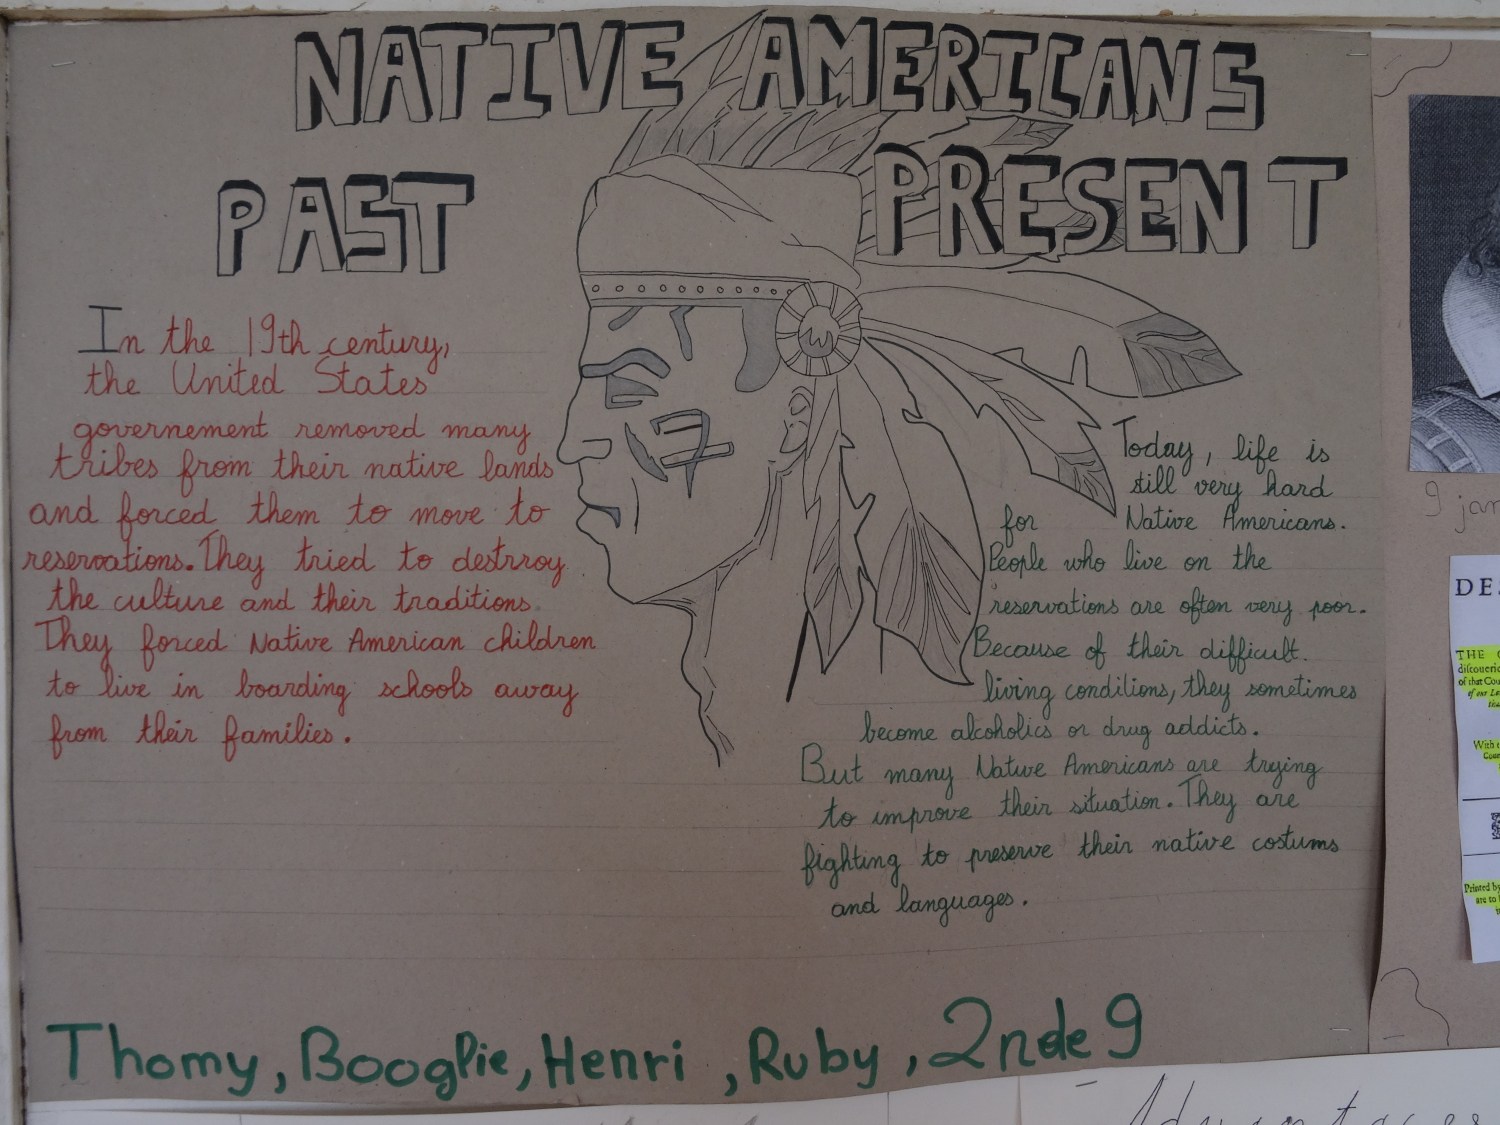 NATIVE AMERICANS
PAST
In the 19th century,
the United States
governement removed many
tribes from their native lands
and forced them to move to
reservations. They tried to destrroy
the culture and their traditions.
They forced Native American children
to live in boarding schools away
from their families.
PRESENT
Today, life is
still very hard
for Native Americans.
People who live on the
reservations are often very poor.
Because of their difficult.
living conditions, they sometimes
become alcoholics or drug addicts.
But many Native Americans are trying
to improve their situation. They are
fighting to preserve their native costums
and languages.
Thomy, Booglie, Henri, Ruby, 2nde 9
9 jan
DE
THE
of that Cou
With
Printed by
are to